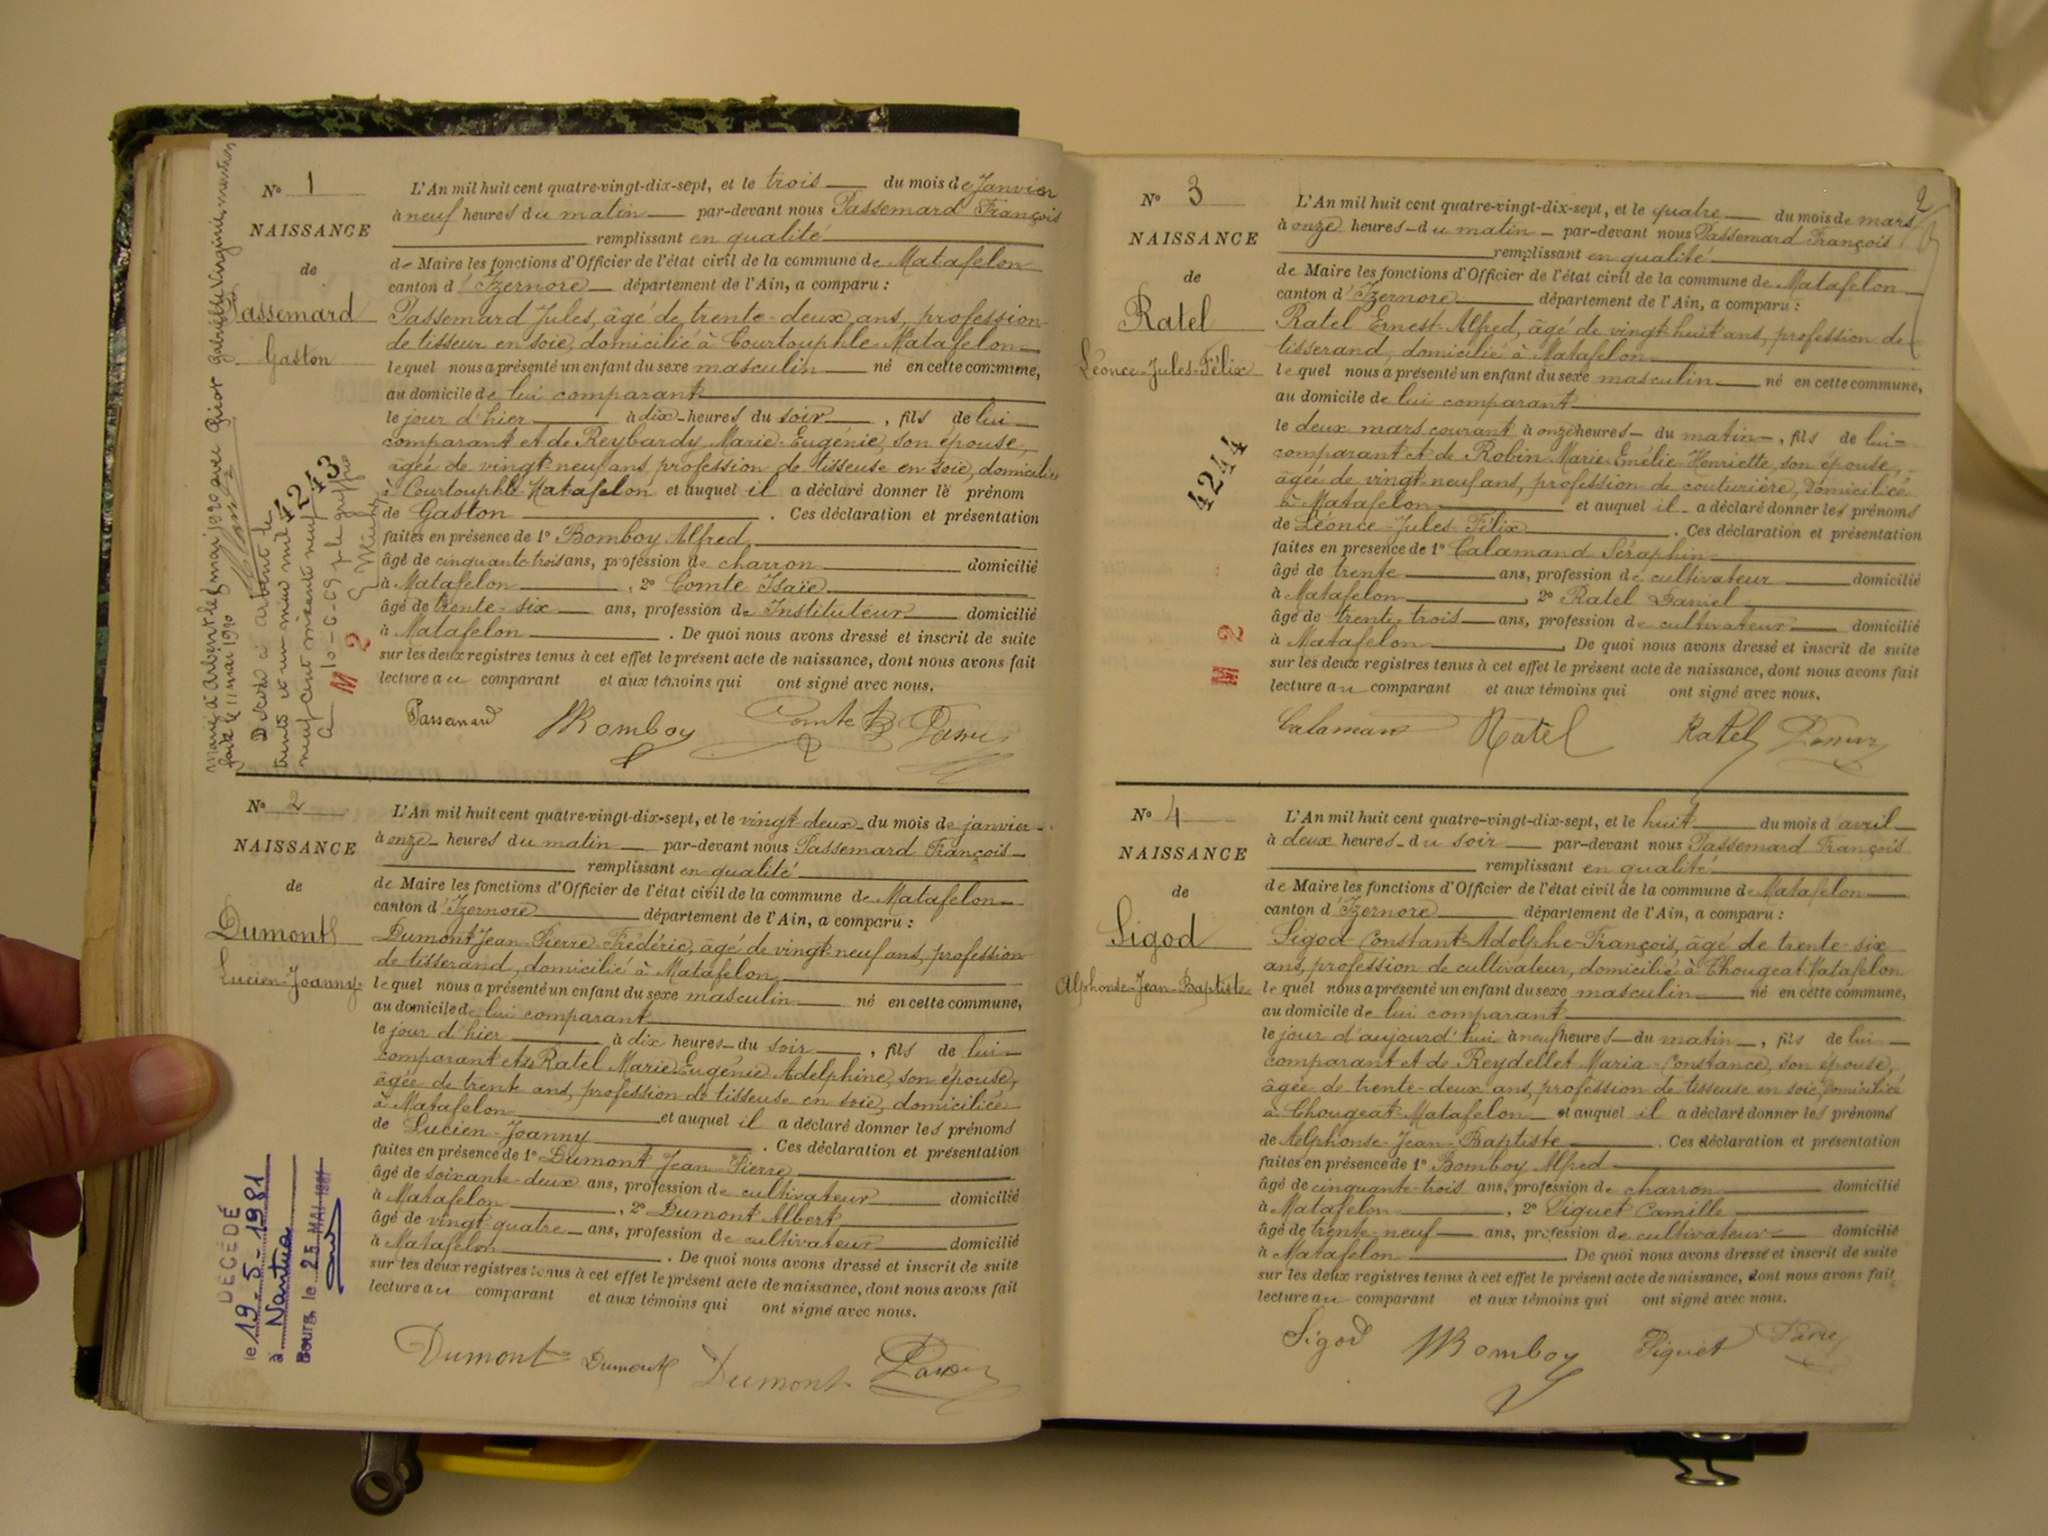 N° 1
NAISSANCE
de
Passemard
Gaston
L'An mil huit cent quatre-vingt-dix-sept, et le trois du mois de Janvier
à neuf heures du matin par-devant nous Passemard François
remplissant en qualité
de Maire les fonctions d'Officier de l'état civil de la commune de Matafelon
canton d'Izernore département de l'Ain, a comparu :
Passemard Jules, âgé de trente-deux ans, profession
de tisseur en soie, domicilié à Courtouphle-Matafelon
lequel nous a présenté un enfant du sexe masculin né en cette commune,
au domicile de lui comparant
le jour d'hier à dix heures du soir, fils de lui
comparant et de Reybardy Marie-Eugénie, son épouse,
âgée de vingt-neuf ans, profession de tisseuse en soie, domiciliée
à Courtouphle Matafelon et auquel il a déclaré donner le prénom
de Gaston. Ces déclaration et présentation
faites en présence de 1° Bomboy Alfred,
âgé de cinquante-trois ans, profession de charron domicilié
à Matafelon, 2° Comte Isaïe
âgé de trente-six ans, profession de Instituteur domicilié
à Matafelon. De quoi nous avons dressé et inscrit de suite
sur les deux registres tenus à cet effet le présent acte de naissance, dont nous avons fait
lecture au comparant et aux témoins qui ont signé avec nous.
Passemard Bomboy Comte
Marié à Arbent le mai 1920 avec Girot Gabrielle Virginie mention
faite le 11 mai 1920
Décédé à Arbent le
trente et un mai mil
neuf cent soixante neuf
10-6-69 le greffier
4243
M 2
N° 2
NAISSANCE
de
Dumont
Lucien-Joanny
L'An mil huit cent quatre-vingt-dix-sept, et le vingt-deux du mois de janvier
à onze heures du matin par-devant nous Passemard François
remplissant en qualité
de Maire les fonctions d'Officier de l'état civil de la commune de Matafelon
canton d'Izernore département de l'Ain, a comparu :
Dumont Jean-Pierre-Frédéric, âgé de vingt-neuf ans, profession
de tisserand, domicilié à Matafelon
lequel nous a présenté un enfant du sexe masculin né en cette commune,
au domicile de lui comparant
le jour d'hier à dix heures du soir, fils de lui
comparant et de Ratel Marie-Eugénie Adelphine, son épouse,
âgée de trente ans, profession de tisseuse en soie, domiciliée
à Matafelon et auquel il a déclaré donner les prénoms
de Lucien-Joanny. Ces déclaration et présentation
faites en présence de 1° Dumont Jean-Pierre
âgé de soixante-deux ans, profession de cultivateur domicilié
à Matafelon, 2° Dumont Albert
âgé de vingt-quatre ans, profession de cultivateur domicilié
à Matafelon. De quoi nous avons dressé et inscrit de suite
sur les deux registres tenus à cet effet le présent acte de naissance, dont nous avons fait
lecture au comparant et aux témoins qui ont signé avec nous.
Dumont Dumont Dumont
DÉCÉDÉ
le 19-5-1981
à Nantua
Bourg, le 25 MAI 1981
2
N° 3
NAISSANCE
de
Ratel
Léonce-Jules-Félix
L'An mil huit cent quatre-vingt-dix-sept, et le quatre du mois de mars
à onze heures du matin par-devant nous Passemard François
remplissant en qualité
de Maire les fonctions d'Officier de l'état civil de la commune de Matafelon
canton d'Izernore département de l'Ain, a comparu :
Ratel Ernest-Alfred, âgé de vingt-huit ans, profession de
tisserand, domicilié à Matafelon
lequel nous a présenté un enfant du sexe masculin né en cette commune,
au domicile de lui comparant
le deux mars courant à onze heures du matin, fils de lui
comparant et de Robin Marie-Emélie-Henriette, son épouse,
âgée de vingt-neuf ans, profession de couturière, domiciliée
à Matafelon et auquel il a déclaré donner les prénoms
de Léonce-Jules-Félix. Ces déclaration et présentation
faites en présence de 1° Calamand Séraphin
âgé de trente ans, profession de cultivateur domicilié
à Matafelon, 2° Ratel Daniel
âgé de trente-trois ans, profession de cultivateur domicilié
à Matafelon. De quoi nous avons dressé et inscrit de suite
sur les deux registres tenus à cet effet le présent acte de naissance, dont nous avons fait
lecture au comparant et aux témoins qui ont signé avec nous.
Calamand Ratel Ratel
4244
M 2
N° 4
NAISSANCE
de
Sigod
Alphonse-Jean-Baptiste
L'An mil huit cent quatre-vingt-dix-sept, et le huit du mois d'avril
à deux heures du soir par-devant nous Passemard François
remplissant en qualité
de Maire les fonctions d'Officier de l'état civil de la commune de Matafelon
canton d'Izernore département de l'Ain, a comparu :
Sigod Constant-Adolphe-François, âgé de trente-six
ans, profession de cultivateur, domicilié à Chougeat-Matafelon
lequel nous a présenté un enfant du sexe masculin né en cette commune,
au domicile de lui comparant
le jour d'aujourd'hui à neuf heures du matin, fils de lui
comparant et de Reydellet Maria-Constance, son épouse,
âgée de trente-deux ans, profession de tisseuse en soie, domiciliée
à Chougeat-Matafelon et auquel il a déclaré donner les prénoms
de Alphonse-Jean-Baptiste. Ces déclaration et présentation
faites en présence de 1° Bomboy Alfred
âgé de cinquante-trois ans, profession de charron domicilié
à Matafelon, 2° Piguet Camille
âgé de trente-neuf ans, profession de cultivateur domicilié
à Matafelon. De quoi nous avons dressé et inscrit de suite
sur les deux registres tenus à cet effet le présent acte de naissance, dont nous avons fait
lecture au comparant et aux témoins qui ont signé avec nous.
Sigod Bomboy Piguet